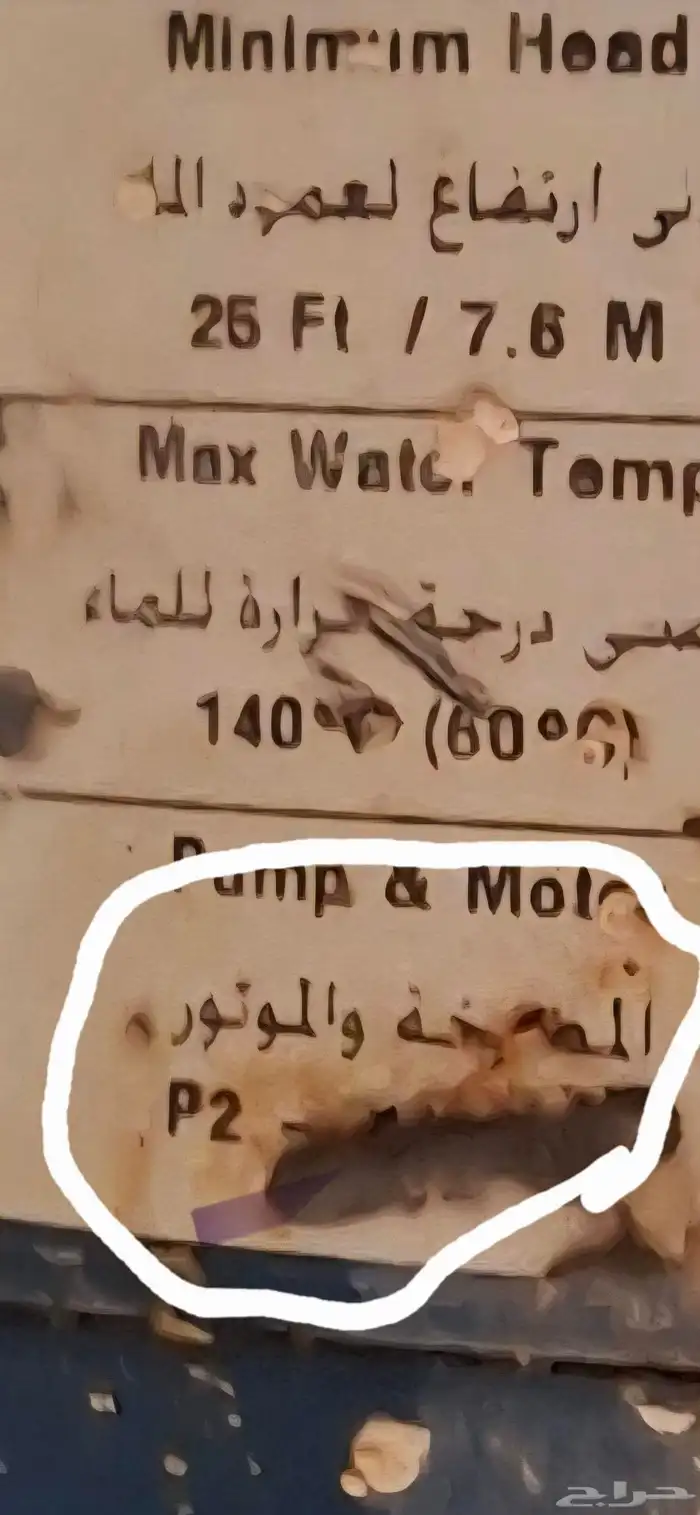 Minimum Head
ارتفاع لعمود
25 Ft / 7.6 M
Max Water Temp
درجة حرارة للماء
140° (60°C)
Pump & Motor
المضخة والموتور
P2
حراج